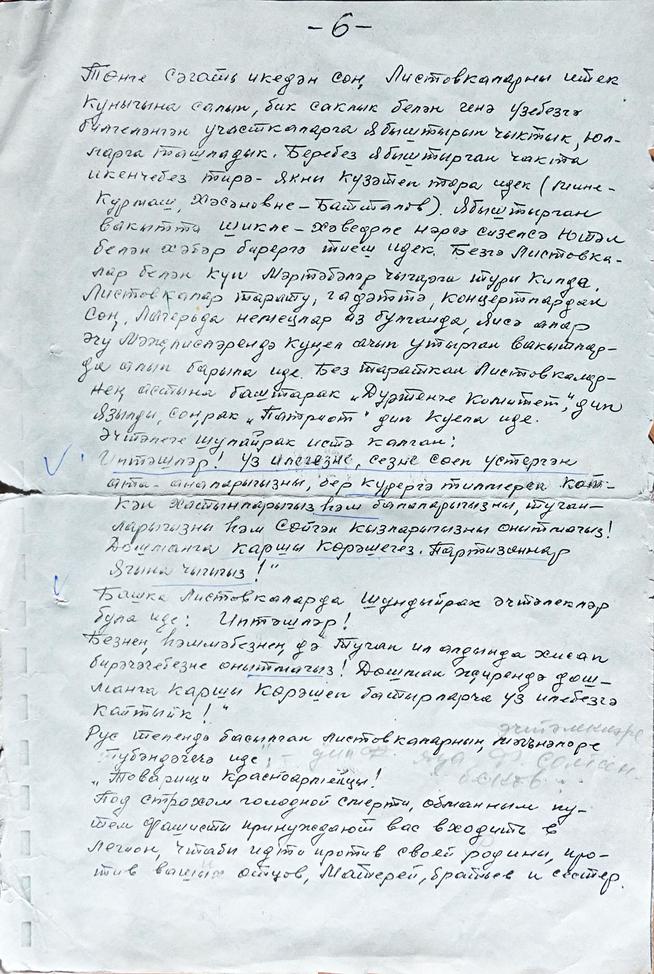 -6-
Төнге сәгать икедән соң, Листовкаларны итек
кунычына салып, бик саклык белән генә үзебезгә
билгеләнгән участкаларга ябыштырып чыктык, юл-
ларга ташладык. Беребез ябыштырган чакта
икенчебез тирә-якны күзәтеп тора идек (мине-
Курмаш, Хәсәновне-Батталов). Ябыштырган
вакытта шикле-хәвефле нәрсә сизелсә ютәл
белән хәбәр бирергә тиеш идек. Безгә Листовка-
лар белән күп мәртәбәләр чыгарга туры килде.
Листовкалар тарату, гадәттә, концертлардан
соң, Лагерьда немецлар аз булганда, яисә алар
эчү мәҗлисләрендә күңел ачып утырган вакытлар-
да алып барыла иде. Без тараткан Листовкалар-
ның астына баштарак „Дүртенче Комитет", дип
языла, соңрак „Патриот" дип куела иде.
Эчтәлеге шулайрак истә калган:
Иптәшләр! Үз илегезне, сезне сөеп үстергән
ата-аналарыгызны, бер күрергә тилмереп көт-
кән хатынларыгыз һәм балаларыгызны, туган-
ларыгызны һәм сөйгән кызларыгызны онытмагыз!
Дошманга каршы көрәшегез. Партизаннар
ягына чыгыгыз!"
Башка Листовкаларда шундыйрак эчтәлекләр
була иде: Иптәшләр!
Безнең һәммәбезнең дә Туган ил алдында хисап
бирәчәгебезне онытмагыз! Дошман җирендә дош-
манга каршы көрәшеп батырларча үз илебезгә
кайтыйк!"
Рус телендә басылган Листовкаларның мәгънәләре
эчтәлекләре
түбәндәгечә иде:
„Товарищи Красноармейцы!
Под страхом голодной смерти, обманным пу-
тем фашисты принуждают вас входить в
легион, чтабы идти против своей родины, про-
тив ваших отцов, матерей, братьев и сестер.